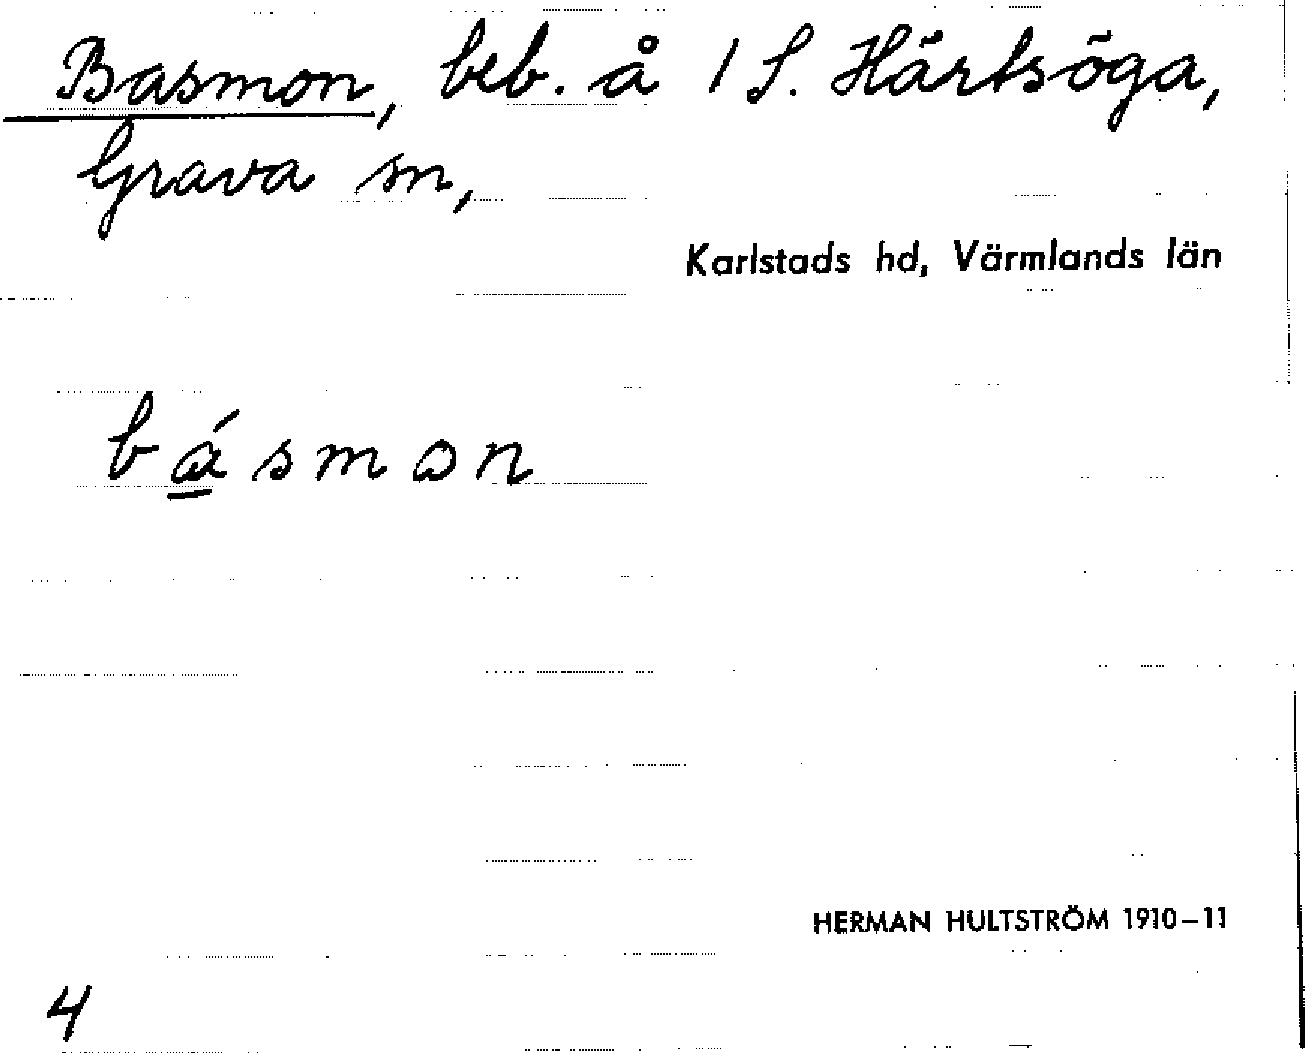 Basmon, beb. å 1 S. Härtsöga,
Grava sn,
Karlstads hd, Värmlands län
bá̱smon
HERMAN HULTSTRÖM 1910–11
4